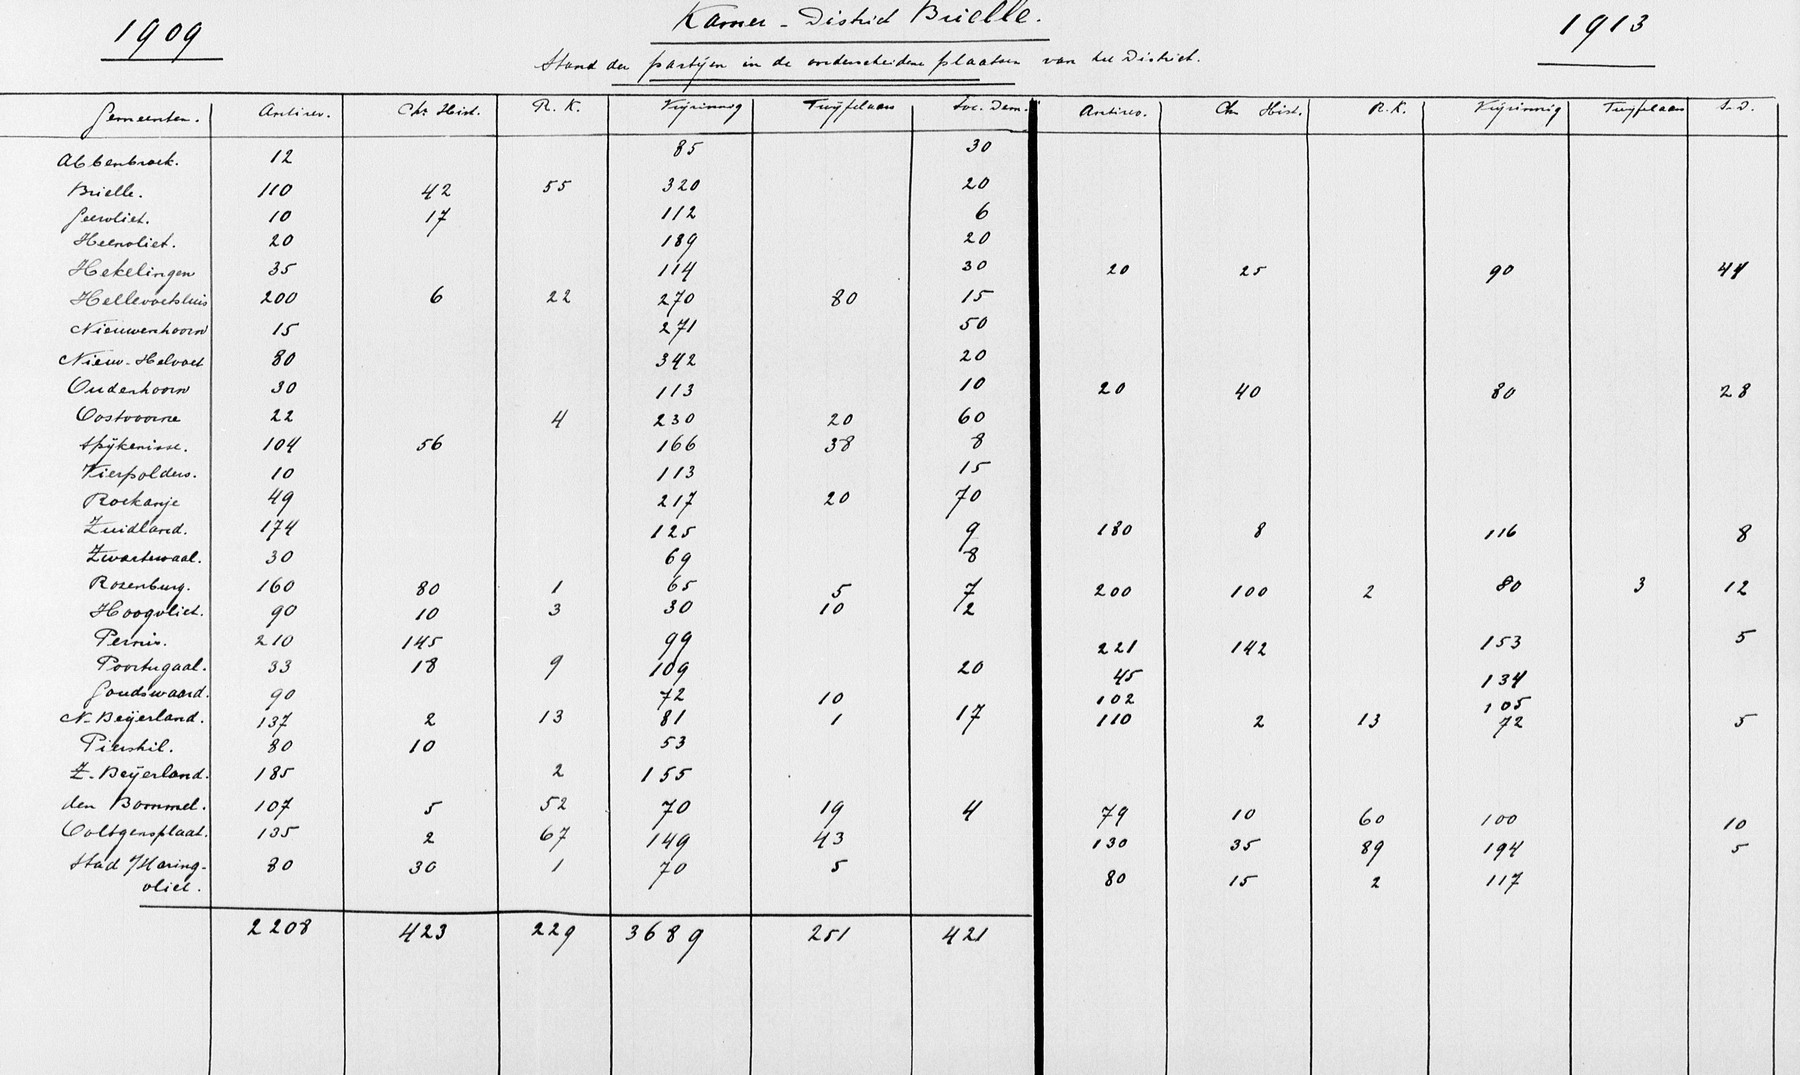 1909 Kamer-District Brielle. 1913
Stand der partijen in de onderscheidene plaatsen van het District.
Gemeenten. Antirev. Chr. Hist. R. K. Vrijzinnig Twijfelaars Soc. Dem. Antirev. Chr. Hist. R. K. Vrijzinnig Twijfelaars S.D.
Abbenbroek. 12 85 30
Brielle. 110 42 55 320 20
Geervliet. 10 17 112 6
Heenvliet. 20 189 20
Hekelingen 35 114 30 20 25 90 44
Hellevoetsluis 200 6 22 270 80 15
Nieuwenhoorn 15 271 50
Nieuw-Helvoet 80 342 20
Oudenhoorn 30 113 10 20 40 80 28
Oostvoorne 22 4 230 20 60
Spijkenisse. 104 56 166 38 8
Vierpolders. 10 113 15
Rockanje 49 217 20 70
Zuidland. 174 125 9 180 8 116 8
Zwartewaal. 30 69 8
Rozenburg. 160 80 1 65 5 7 200 100 2 80 3 12
Hoogvliet. 90 10 3 30 10 2
Pernis. 210 145 99 221 142 153 5
Poortugaal. 33 18 9 109 20 45 134
Goudswaard. 90 72 10 102 105
N-Beijerland. 137 2 13 81 1 17 110 2 13 72 5
Piershil. 80 10 53
Z-Beijerland. 185 2 155
den Bommel. 107 5 52 70 19 4 79 10 60 100 10
Ooltgensplaat. 135 2 67 149 43 130 35 89 194 5
Stad a/Haring- 80 30 1 70 5 80 15 2 117
vliet.
2208 423 229 3689 251 421